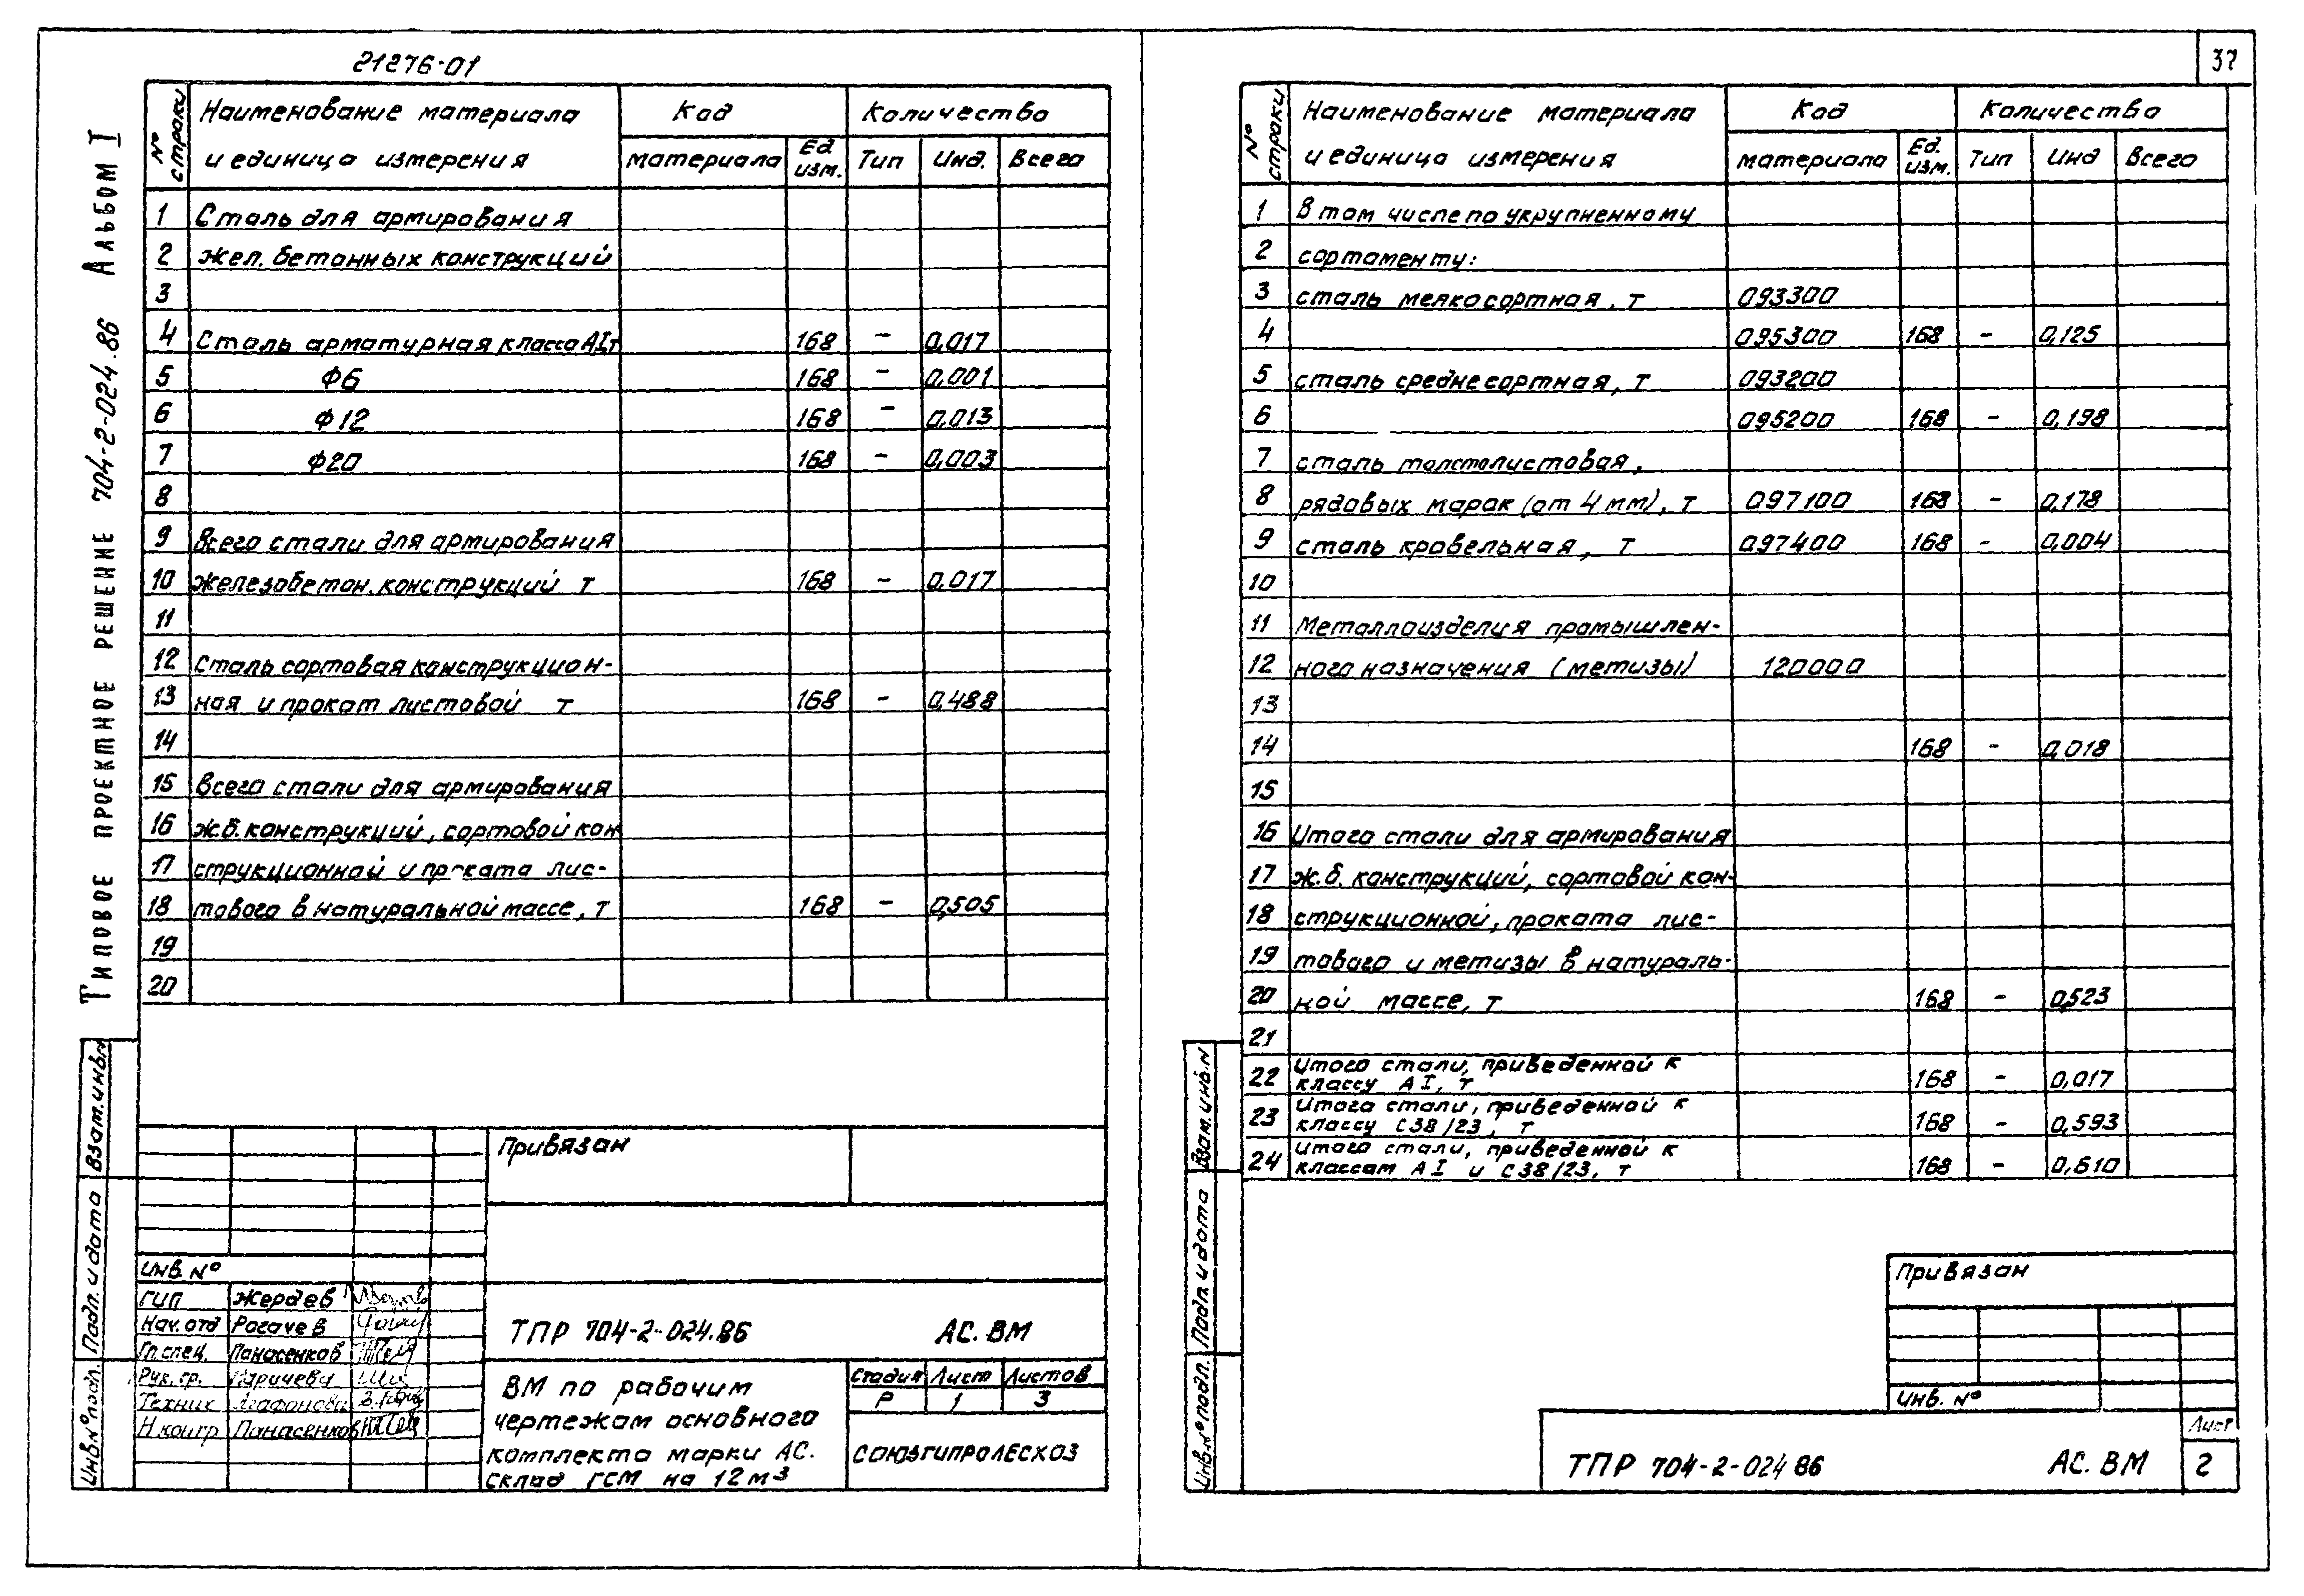 21276-01
37
Типовое проектное решение 704-2-024.86 Альбом I
№ строки | Наименование материала и единица измерения | Код | Количество
материала | Ед. изм. | Тип | Инд. | Всего
1 Сталь для армирования
2 жел. бетонных конструкций
3
4 Сталь арматурная класса АI,т 168 – 0,017
5 Ф6 168 – 0,001
6 Ф12 168 – 0,013
7 Ф20 168 – 0,003
8
9 Всего стали для армирования
10 железобетон. конструкций т 168 – 0,017
11
12 Сталь сортовая конструкцион-
13 ная и прокат листовой т 168 – 0,488
14
15 Всего стали для армирования
16 ж.б. конструкций, сортовой кон
17 струкционной и проката лис-
18 тового в натуральной массе, т 168 – 0,505
19
20
Привязан
Инв. №
ГИП Жердев
Нач. отд Рогачев
Гл. спец. Панасенков
Рук. гр. Ларичева
Техник Агафонова
Н контр Панасенков
ТПР 704-2-024.86 АС. ВМ
ВМ по рабочим
чертежам основного
комплекта марки АС.
Склад ГСМ на 12 м³
Стадия Лист Листов
Р 1 3
СОЮЗГИПРОЛЕСХОЗ
Взам. инв. N
Подп. и дата
Инв. № подл.
№ строки | Наименование материала и единица измерения | Код | Количество
материала | Ед. изм. | Тип | Инд | Всего
1 В том числе по укрупненному
2 сортаменту:
3 сталь мелкосортная, т 093300
4 095300 168 – 0,125
5 сталь среднесортная, т 093200
6 095200 168 – 0,198
7 сталь толстолистовая,
8 рядовых марок (от 4 мм), т 097100 168 – 0,178
9 сталь кровельная, т 097400 168 – 0,004
10
11 Металлоизделия промышлен-
12 ного назначения (метизы) 120000
13
14 168 – 0,018
15
16 Итого стали для армирования
17 ж.б. конструкций, сортовой кон-
18 струкционной, проката лис-
19 тового и метизы в натураль-
20 ной массе, т 168 – 0,523
21
22 Итого стали, приведенной к классу АI, т 168 – 0,017
23 Итого стали, приведенной к классу С38/23, т 168 – 0,593
24 Итого стали, приведенной к классам АI и С38/23, т 168 – 0,610
Взам. инв. N
Подп. и дата
Инв. № подл.
Привязан
Инв. №
ТПР 704-2-024 86 АС. ВМ
Лист
2